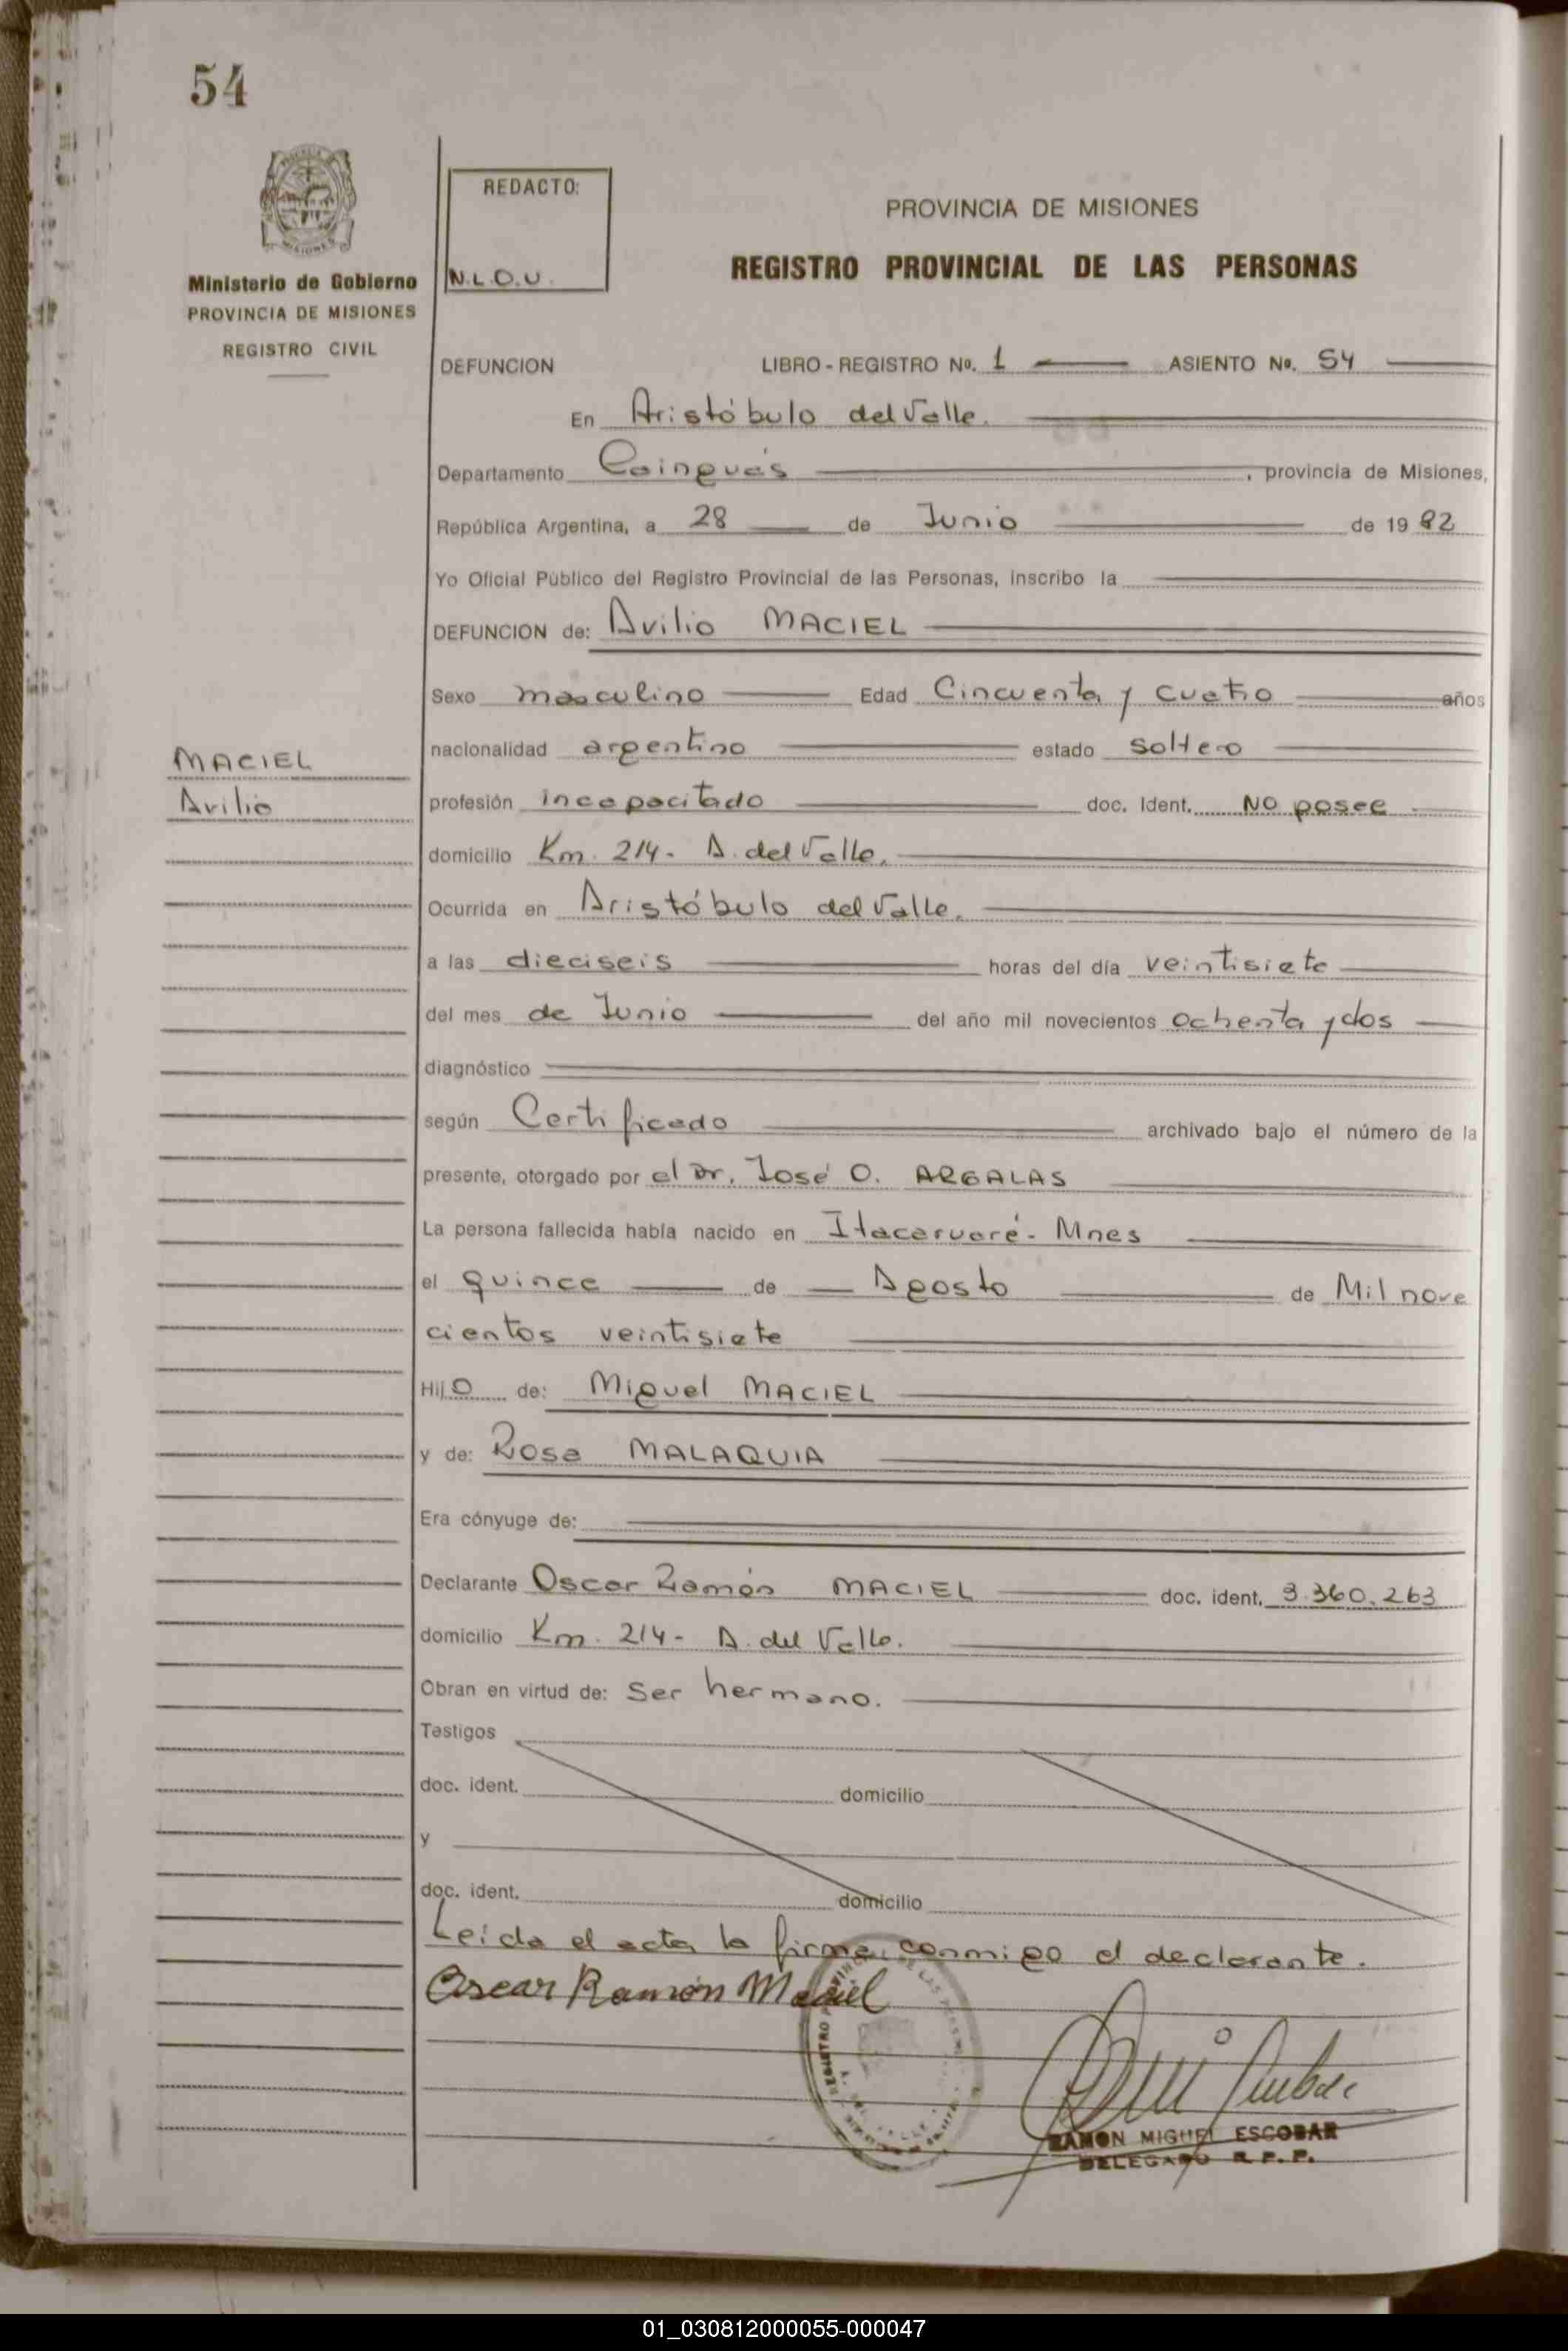 54
REDACTO:
N.L.D.U.
Ministerio de Gobierno
PROVINCIA DE MISIONES
REGISTRO CIVIL
PROVINCIA DE MISIONES
REGISTRO PROVINCIAL DE LAS PERSONAS
DEFUNCION LIBRO - REGISTRO No. 1 ASIENTO No. 54
En Aristóbulo del Valle.
Departamento Cainguás, provincia de Misiones,
República Argentina, a 28 de Junio de 1982
Yo Oficial Público del Registro Provincial de las Personas, inscribo la
DEFUNCION de: Avilio MACIEL
Sexo masculino Edad Cincuenta y cuatro años
nacionalidad argentino estado soltero
MACIEL
Avilio
profesión incapacitado doc. Ident. No posee
domicilio Km. 214- A. del Valle.
Ocurrida en Aristóbulo del Valle.
a las dieciseis horas del día veintisiete
del mes de Junio del año mil novecientos ochenta y dos
diagnóstico
según Certificado archivado bajo el número de la
presente, otorgado por el Dr. José O. ARGALAS
La persona fallecida había nacido en Itacaruaré- Mnes
el quince de Agosto de Mil nove
cientos veintisiete
Hijo de: Miguel MACIEL
y de: Rosa MALAQUIA
Era cónyuge de:
Declarante Oscar Ramón MACIEL doc. ident. 3.360.263
domicilio Km. 214- A. del Valle.
Obran en virtud de: Ser hermano.
Testigos
doc. ident. domicilio
y
doc. ident. domicilio
Leída el acta la firma conmigo el declarante.
Oscar Ramón Maciel
RAMON MIGUEL ESCOBAR
DELEGADO R. P. P.
01_030812000055-000047